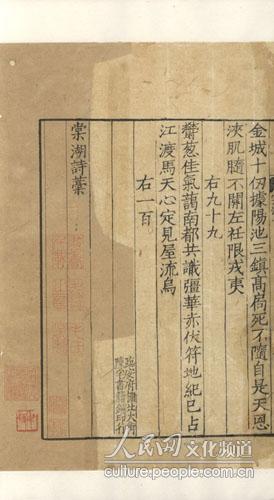 金城十仞據陽池三鎮髙扄死不隨自是天恩
浹肌髓不關左衽限戎夷
右九十九
鬱葱佳氣藹南都共識彊華赤伏符地紀已占
江渡馬天心定見屋流烏
右一百
臨安府棚北大街
陳宅書籍鋪印行
棠湖詩藁
人民网文化频道
culture.people.com.cn